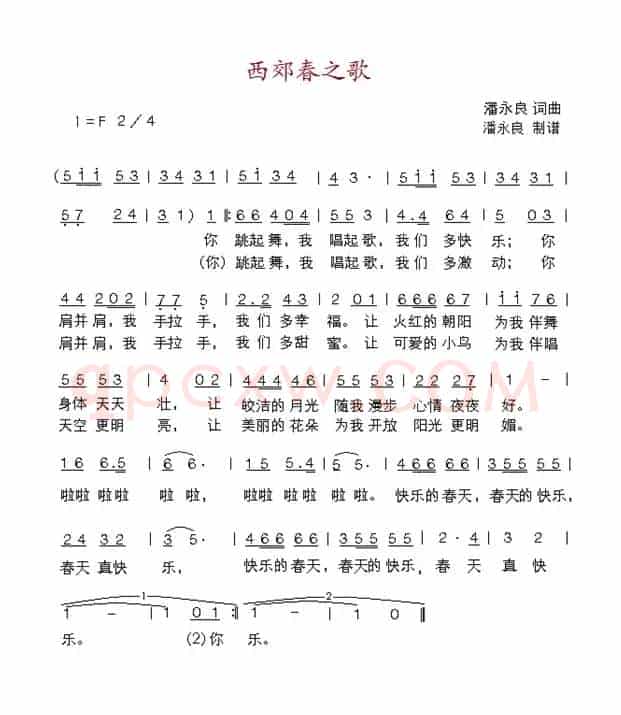 西郊春之歌
1=F 2/4
潘永良 词曲
潘永良 制谱
(5 i i 5 3 | 3 4 3 1 | 5 i i 5 3 | 3 4 3 1 | 4 3 · | 5 i i 5 3 | 3 4 3 1 |
5 7 2 4 | 3 1 ) 1 |: 6 6 4 0 4 | 5 5 3 | 4 . 4 6 | 5 0 3 |
你 跳起舞,我 唱起歌,我们 多快 乐;你
(你) 跳起舞,我 唱起歌,我们 多激 动;你
4 4 2 0 2 | 7 7 5 | 2 . 2 4 3 | 2 0 1 | 6 6 6 6 7 6 | 5 4 5 |
肩并肩,我 手拉手,我们多幸 福。让 火红的朝阳 为我伴舞
肩并肩,我 手拉手,我们多甜 蜜。让 可爱的小鸟 为我伴唱
5 5 5 3 | 4 0 2 | 4 4 4 4 6 | 5 5 5 4 5 | 2 2 2 2 3 | 1 – |
身体天天 壮,让 皎洁的月光 随我漫步 心情夜夜 好。
天空更明 亮,让 美丽的花朵 为我开放 阳光更明 媚。
1 6 6 . 5 | 6 6 · | 1 5 5 . 4 | 5 5 · | 4 6 6 6 6 | 3 5 5 5 5 |
啦啦啦啦 啦啦, 啦啦啦啦啦啦。 快乐的春天,春天的快乐,
2 4 3 2 | 3 5 · | 4 6 6 6 6 | 3 5 5 5 5 | 2 · 4 | 3 2 |
春天真快 乐, 快乐的春天,春天的快乐,春 天 真 快
1 2
1 – | 1 0 1 :| 1 – | 1 0 ‖
乐。 (2)你 乐。
qpcxw.COM